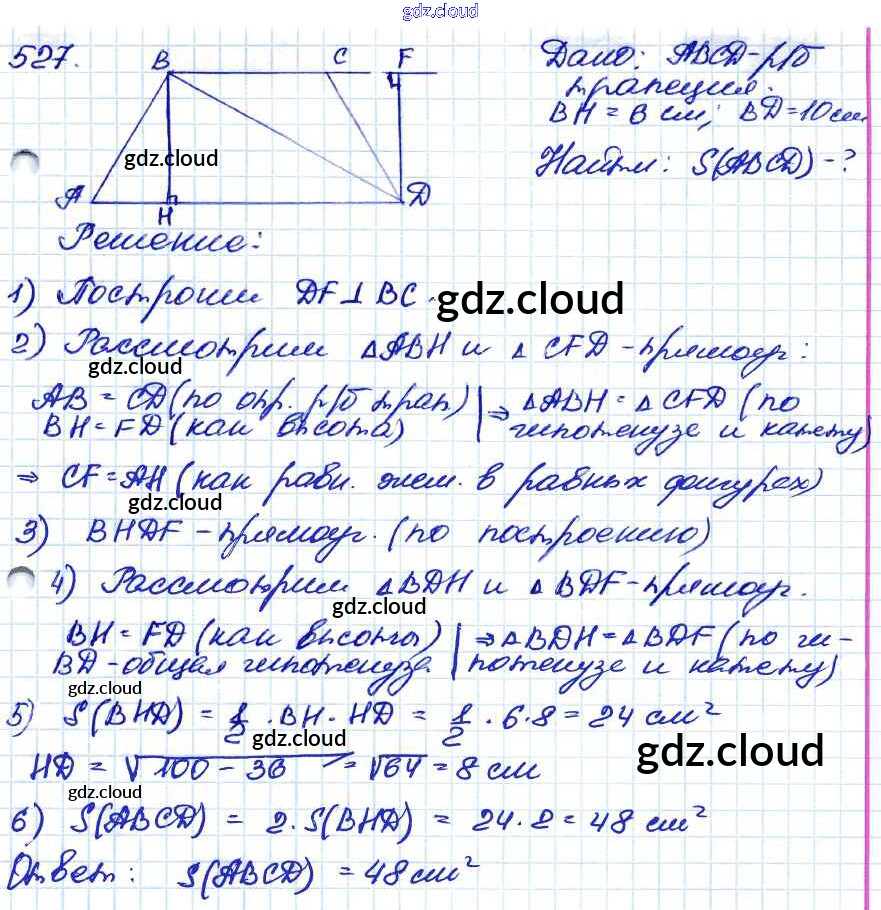 gdz.cloud
527.
B C F
A H D
gdz.cloud
Дано: ABCD - р/б
трапеция.
BH = 6 см; BD = 10 см
Найти: S(ABCD) - ?
Решение:
1) Построим DF ⊥ BC.
gdz.cloud
2) Рассмотрим △ABH и △CFD - прямоуг:
gdz.cloud
AB = CD (по опр. р/б трап) | ⇒ △ABH = △CFD (по
BH = FD (как высота) | гипотенузе и катету)
⇒ CF = AH (как равн. элем. в равных фигурах)
gdz.cloud
3) BHDF - прямоуг. (по построению)
4) Рассмотрим △BDH и △BDF - прямоуг.
gdz.cloud
BH = FD (как высоты) | ⇒ △BDH = △BDF (по ги-
BD - общая гипотенуза | потенузе и катету)
gdz.cloud
5) S(BHD) = 1/2 · BH · HD = 1/2 · 6 · 8 = 24 см²
gdz.cloud
gdz.cloud
HD = √100 - 36 = √64 = 8 см
gdz.cloud
6) S(ABCD) = 2 · S(BHD) = 24 · 2 = 48 см²
Ответ: S(ABCD) = 48 см²